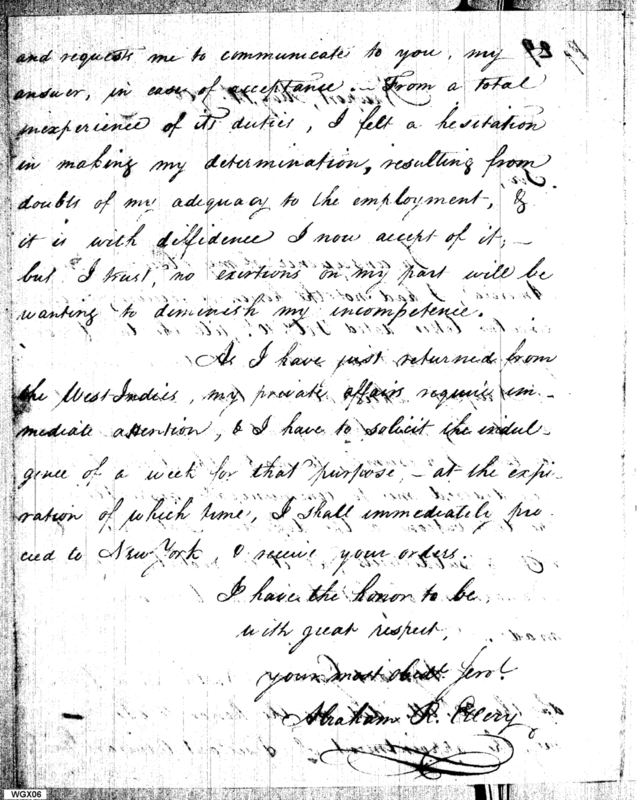 and requests me to communicate to you, my
answer, in case of acceptance. — From a total
inexperience of its duties, I felt a hesitation
in making my determination, resulting from
doubts of my adequacy to the employment, &
it is with diffidence I now accept of it; —
but I trust, no exertions on my part will be
wanting to diminish my incompetence.
As I have just returned from
the West Indies, my private affairs require im-
mediate attention, & I have to solicit the indul-
gence of a week for that purpose, — at the expi-
ration of which time, I shall immediately pro-
ceed to New York, & receive your orders.
I have the honor to be,
with great respect,
your most obedt. Servt.
Abraham R. Ellery
WGX06